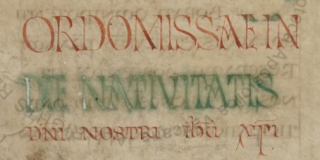 ORDO MISSAE IN
DIE NATIVITATIS
DNI NOSTRI ihu xpi